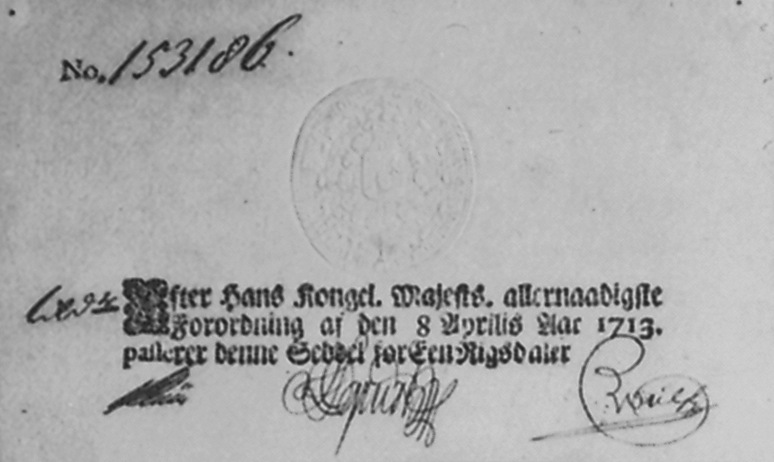 No. 153186.
Efter Hans Kongel. Majests. allernaadigste
Forordning af den 8 Aprilis Aar 1713.
passerer denne Seddel for Een Rigsdaler